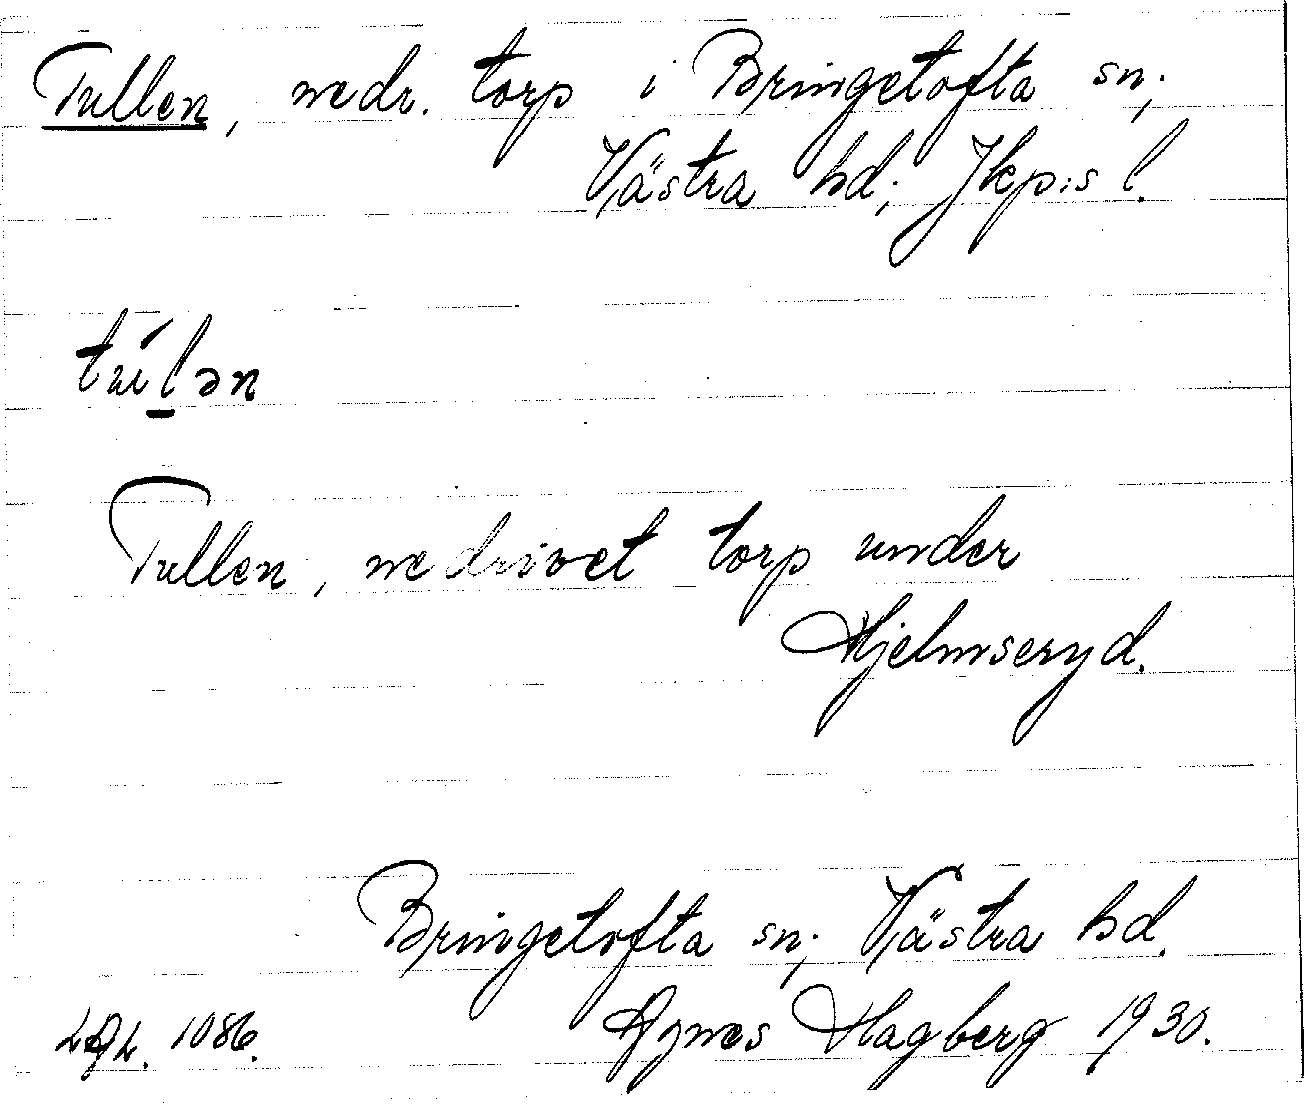 Tullen, nedr. torp i Bringetofta sn;
Västra hd; Jkp:s l.
túl̲ən
Tullen, nedrivet torp under
Hjelmseryd.
Bringetofta sn; Västra hd.
Agnes Hagberg 1930.
1086.